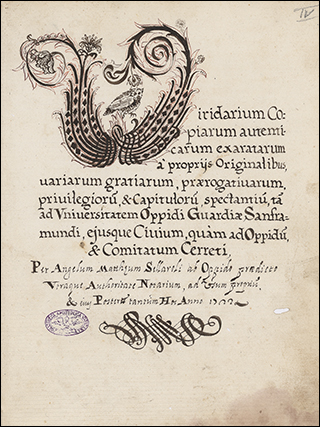 IV
Viridarium Co-
piarum autenti-
carum exaratarum
a proprijs Originalibus,
variarum gratiarum, prærogativarum,
privilegiorũ, & Capitulorũ spectantiũ, tã
ad Vniversitatem Oppidi Guardiæ Sanfra-
mundi, ejusque Civium, quàm ad Oppidũ,
& Comitatum Cerreti
Per Angelum Mattheum Sellaroli ab Oppido prædicto
Utraque Authoritate Notarium, ad usum proprium
& Posterũ Anno 1702